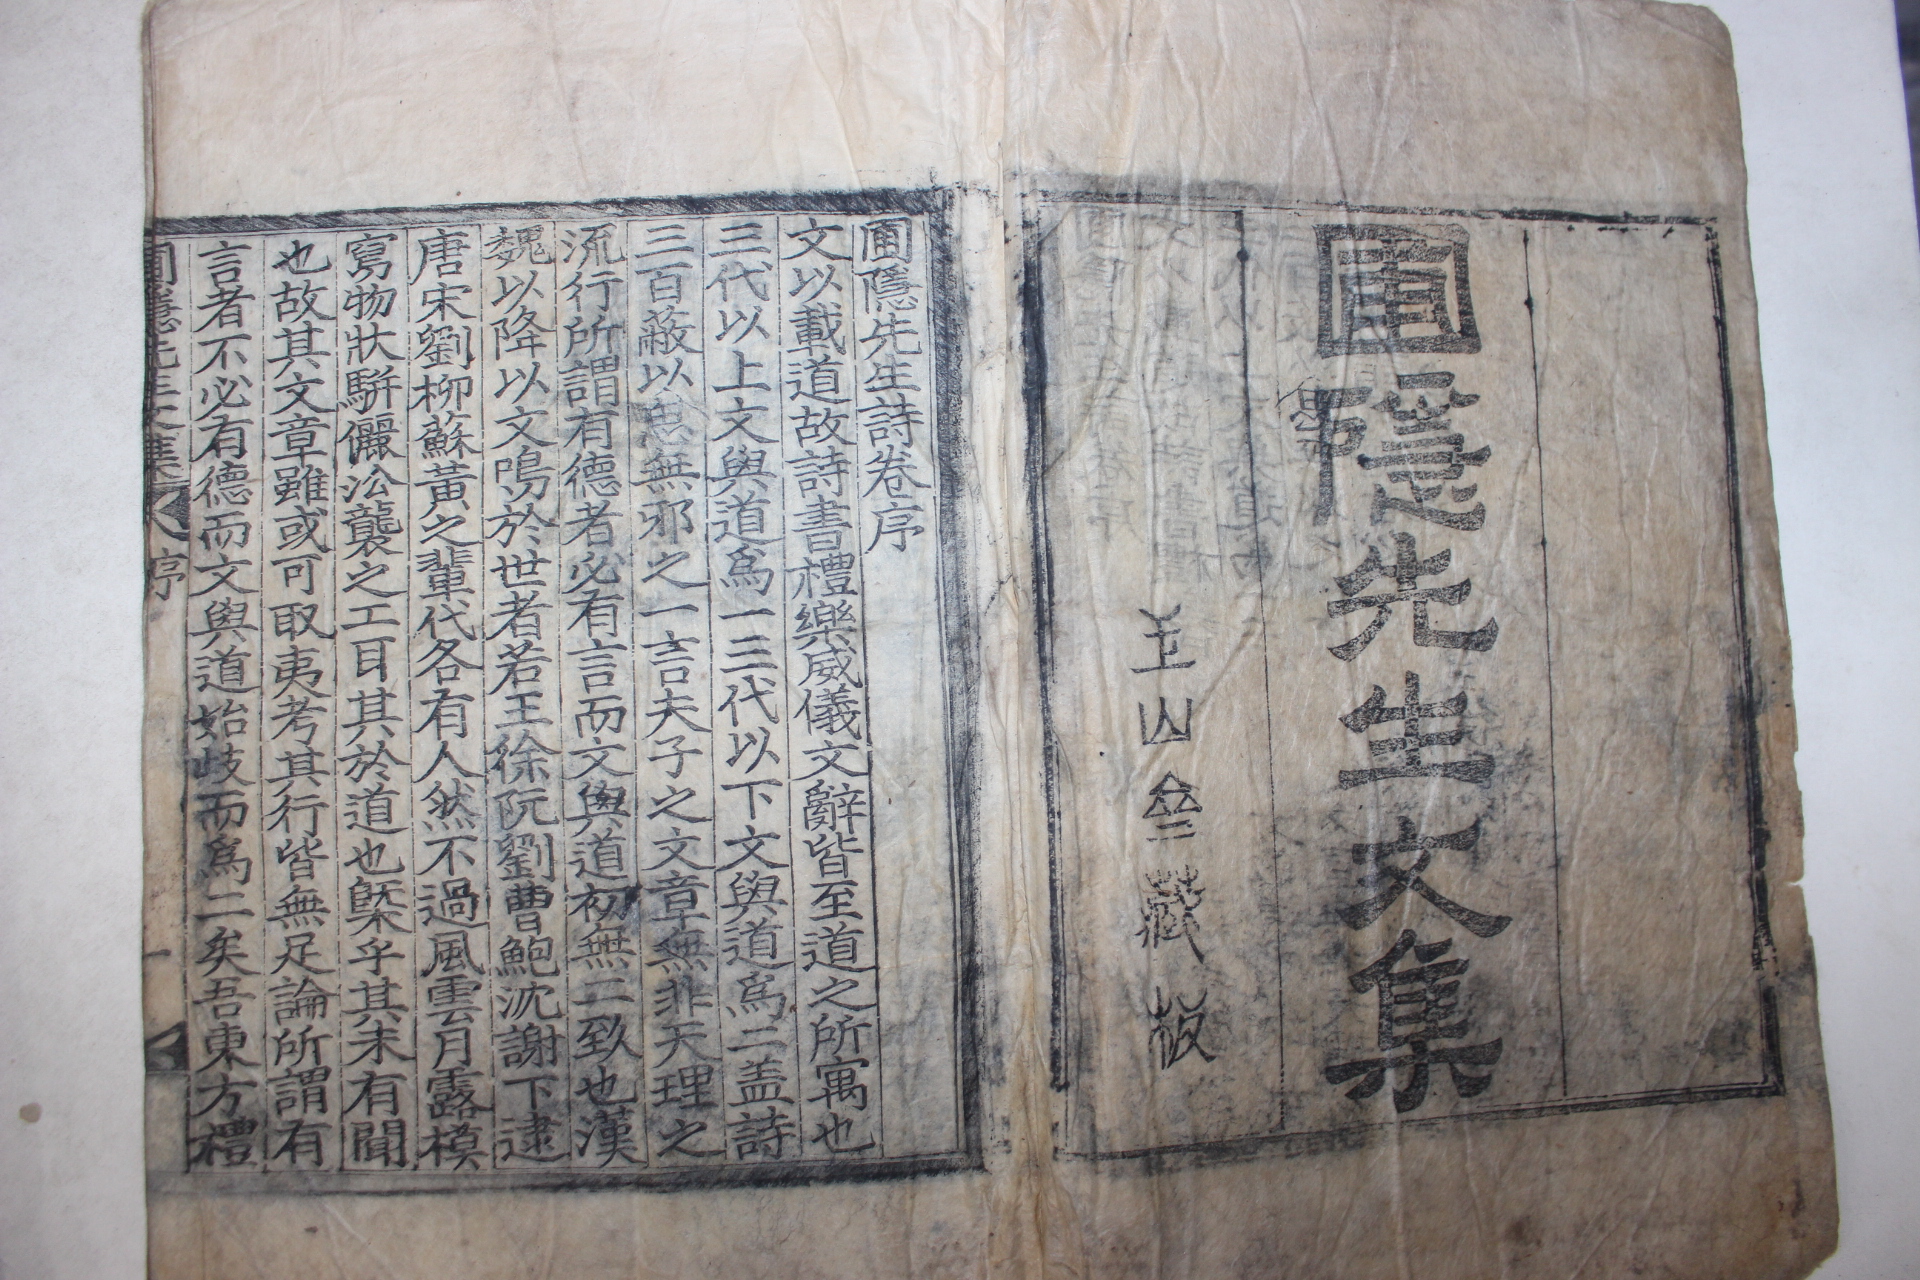 圃隱先生文集
玉山仝藏板
圃隱先生詩卷序
文以載道故詩書禮樂威儀文辭皆至道之所寓也
三代以上文與道爲一三代以下文與道爲二盖詩
三百蔽以思無邪之一言夫子之文章無非天理之
流行所謂有德者必有言而文與道初無二致也漢
魏以降以文鳴於世者若王徐阮劉曹鮑沈謝下逮
唐宋劉柳蘇黃之輩代各有人然不過風雲月露模
寫物狀駢儷㳂襲之工耳其於道也槩乎其未有聞
也故其文章雖或可取夷考其行皆無足論所謂有
言者不必有德而文與道始歧而爲二矣吾東方禮
圃隱先生文集 序 一